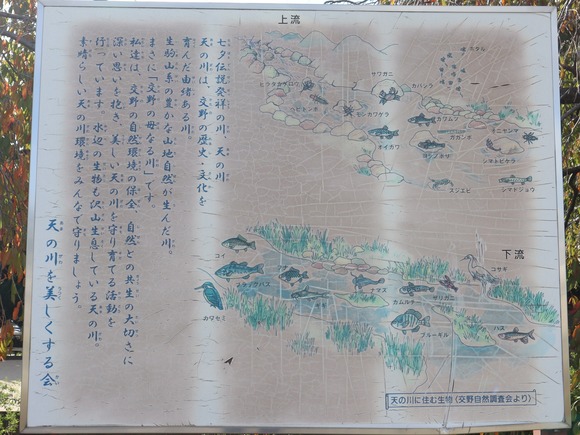 上流
七夕伝説発祥の川 天の川
天の川は、交野の歴史・文化を
育んだ由緒ある川。
生駒山系の豊かな山地自然が生んだ川。
まさに「交野の母なる川」です。
私達は、交野の自然環境の保全、自然との共生の大切さに
深い思いを抱き、美しい天の川を守り育てる活動を
行っています。水辺の生物も沢山生息している天の川。
素晴らしい天の川環境をみんなで守りましょう。
天の川を美しくする会
ホタル
サワガニ
カバシラ
ヒラタカゲロウ
モンカワゲラ
カワムツ
ガガンボ
オニヤンマ
オイカワ
シマドジョウ
スジエビ
下流
コサギ
コイ
カワセミ
ナマズ
カムルチー
ザリガニ
ブルーギル
ハス
天の川に住む生物(交野自然調査会より)